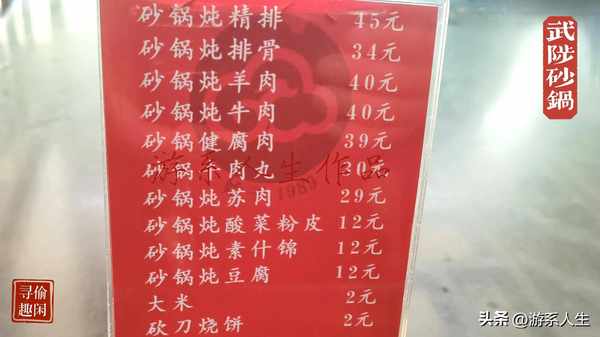 武陟砂鍋
砂锅炖精排 45元
砂锅炖排骨 34元
砂锅炖羊肉 40元
砂锅炖牛肉 40元
砂锅健腐肉 39元
砂锅牛肉丸 30元
游系人生作品
1989
砂锅炖苏肉 29元
砂锅炖酸菜粉皮 12元
砂锅炖素什锦 12元
砂锅炖豆腐 12元
大米 2元
砍刀烧饼 2元
偷闲
寻趣
头条 @游系人生